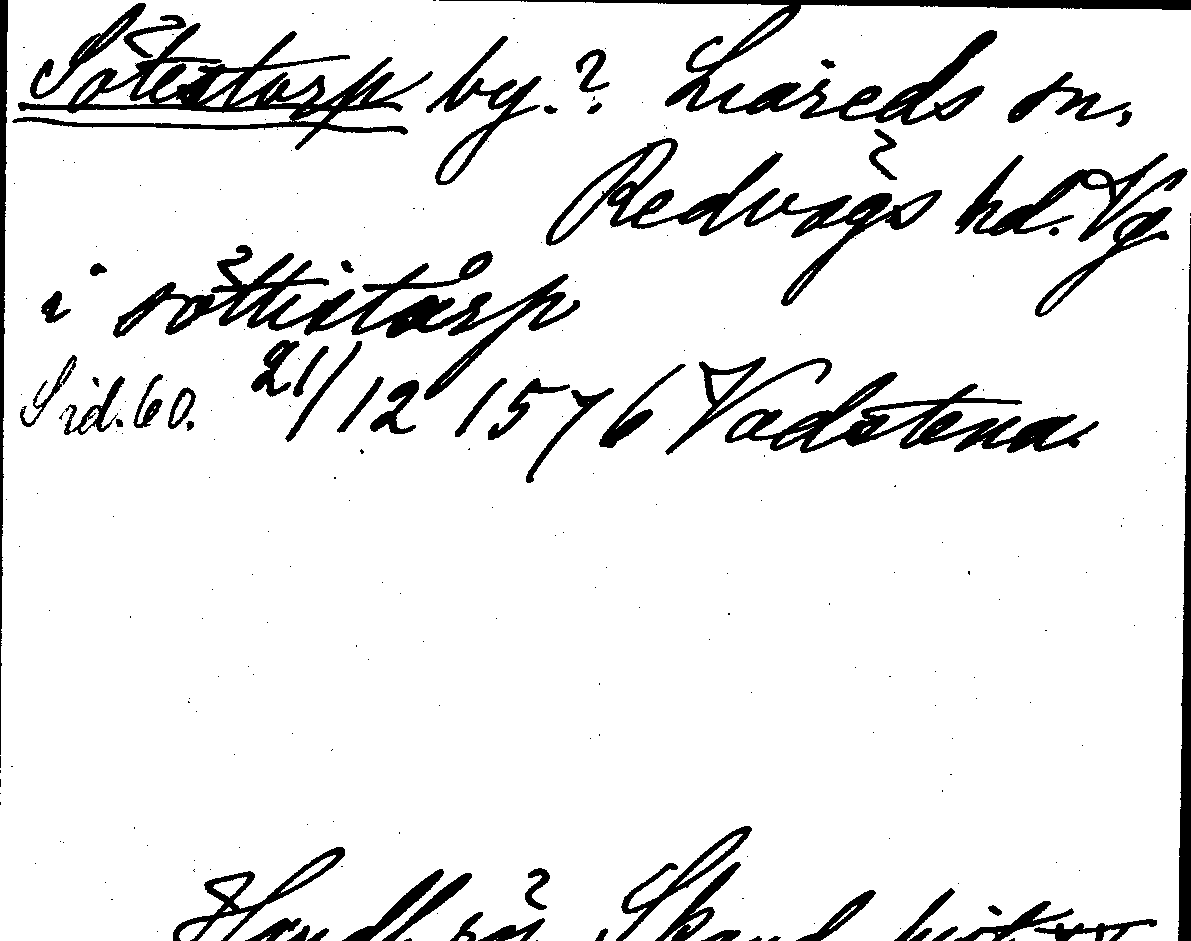 Sötestorp by.? Liareds sn,
Redvägs hd. Vg.
i söttistårp
Sid. 60. 21/12 1576 Vadstena.
Handl. rör. Skand. hist. XX